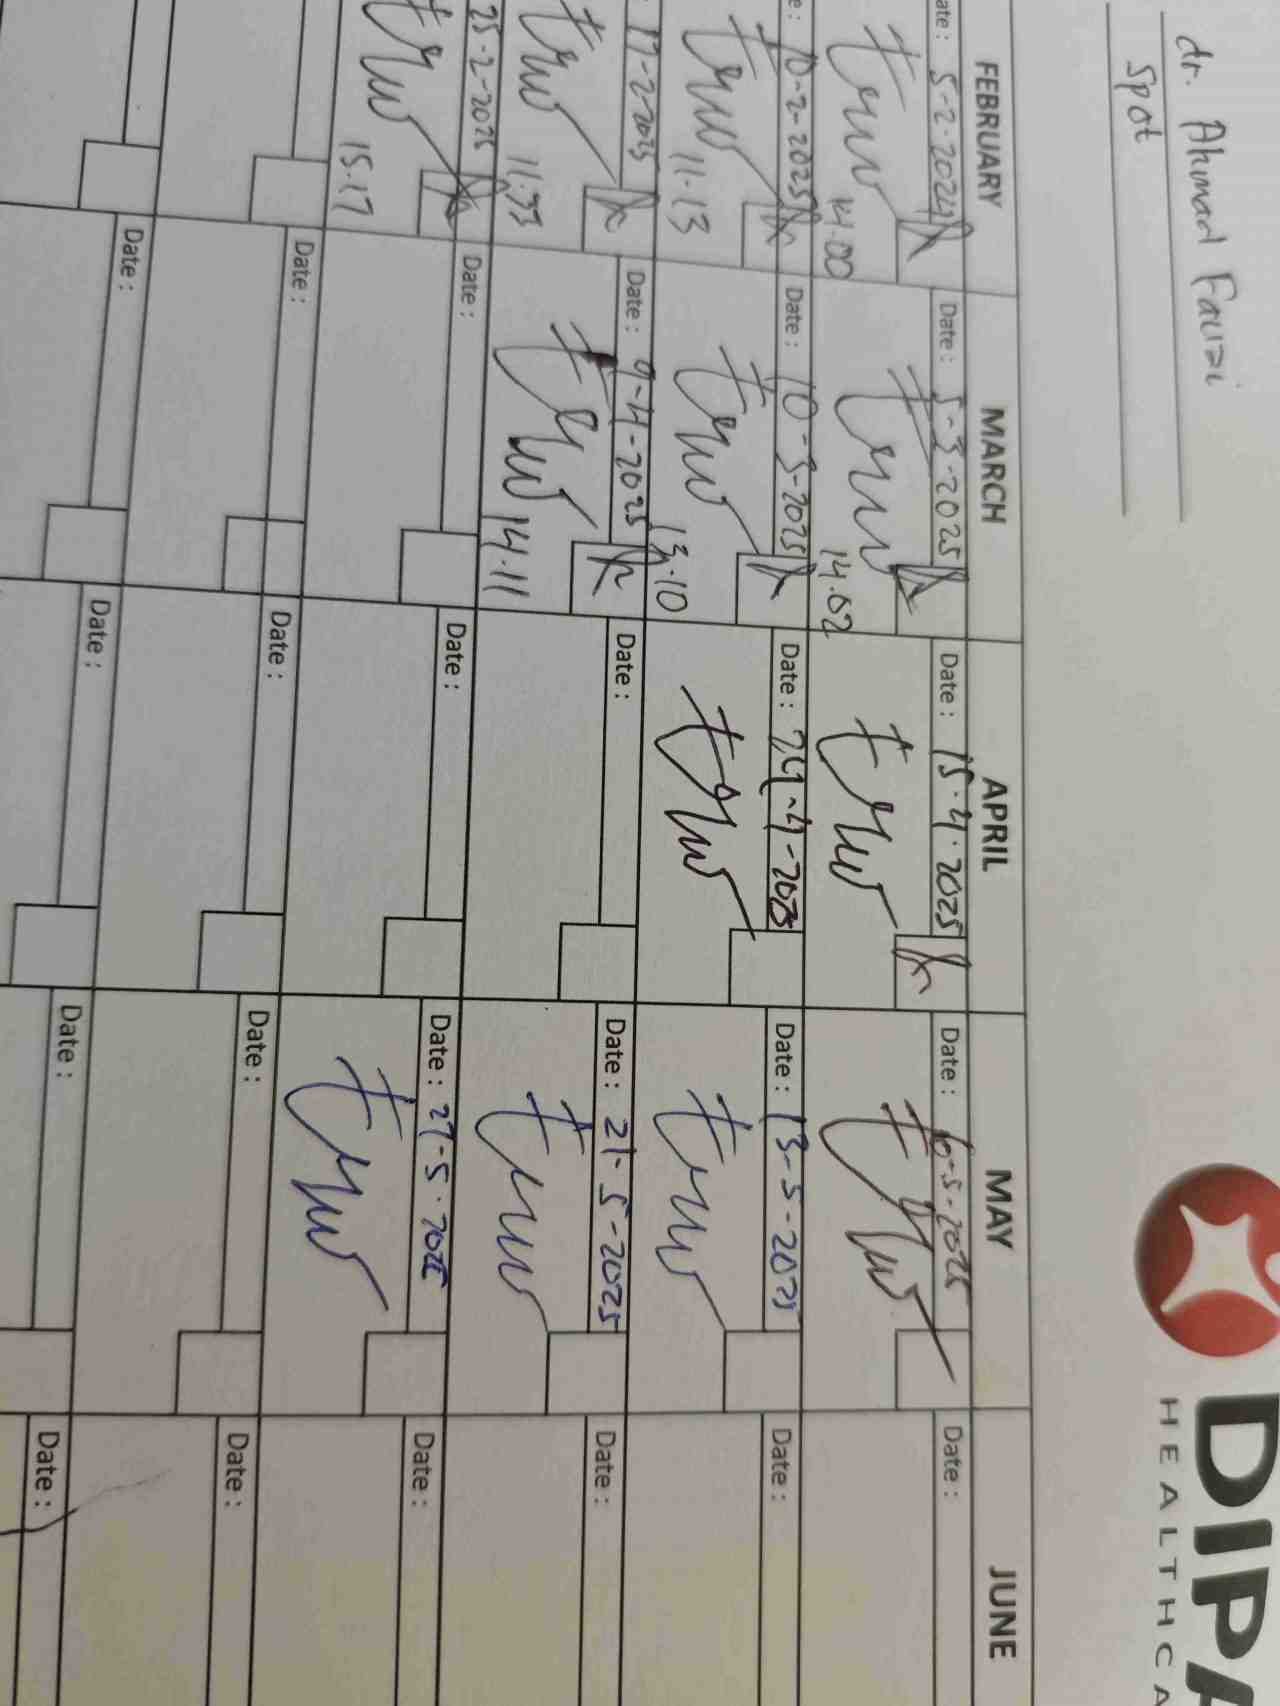 DIPA
HEALTHCA
dr. Ahmad Fauzi
Spot
FEBRUARY MARCH APRIL MAY JUNE
ate : 5-2-2024 Date : 5-3-2025 Date : 15-4-2025 Date : 6-5-2025 Date :
14.00 14.02
e : 10-2-2025 Date : 10-3-2025 Date : 24-4-2025 Date : 13-5-2025 Date :
11.13 13.10
17-2-2025 Date : 9-4-2025 Date : Date : 21-5-2025 Date :
11.33 14.11
25-2-2025 Date : Date : Date : 27-5-2025 Date :
15.17
Date : Date : Date : Date :
Date : Date : Date : Date :